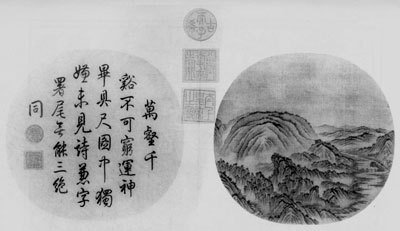 萬壑千
谿不可窮運神
畢具尺圓中獨
嫌未見詩兼字
署尾能三絕
同
古希天子